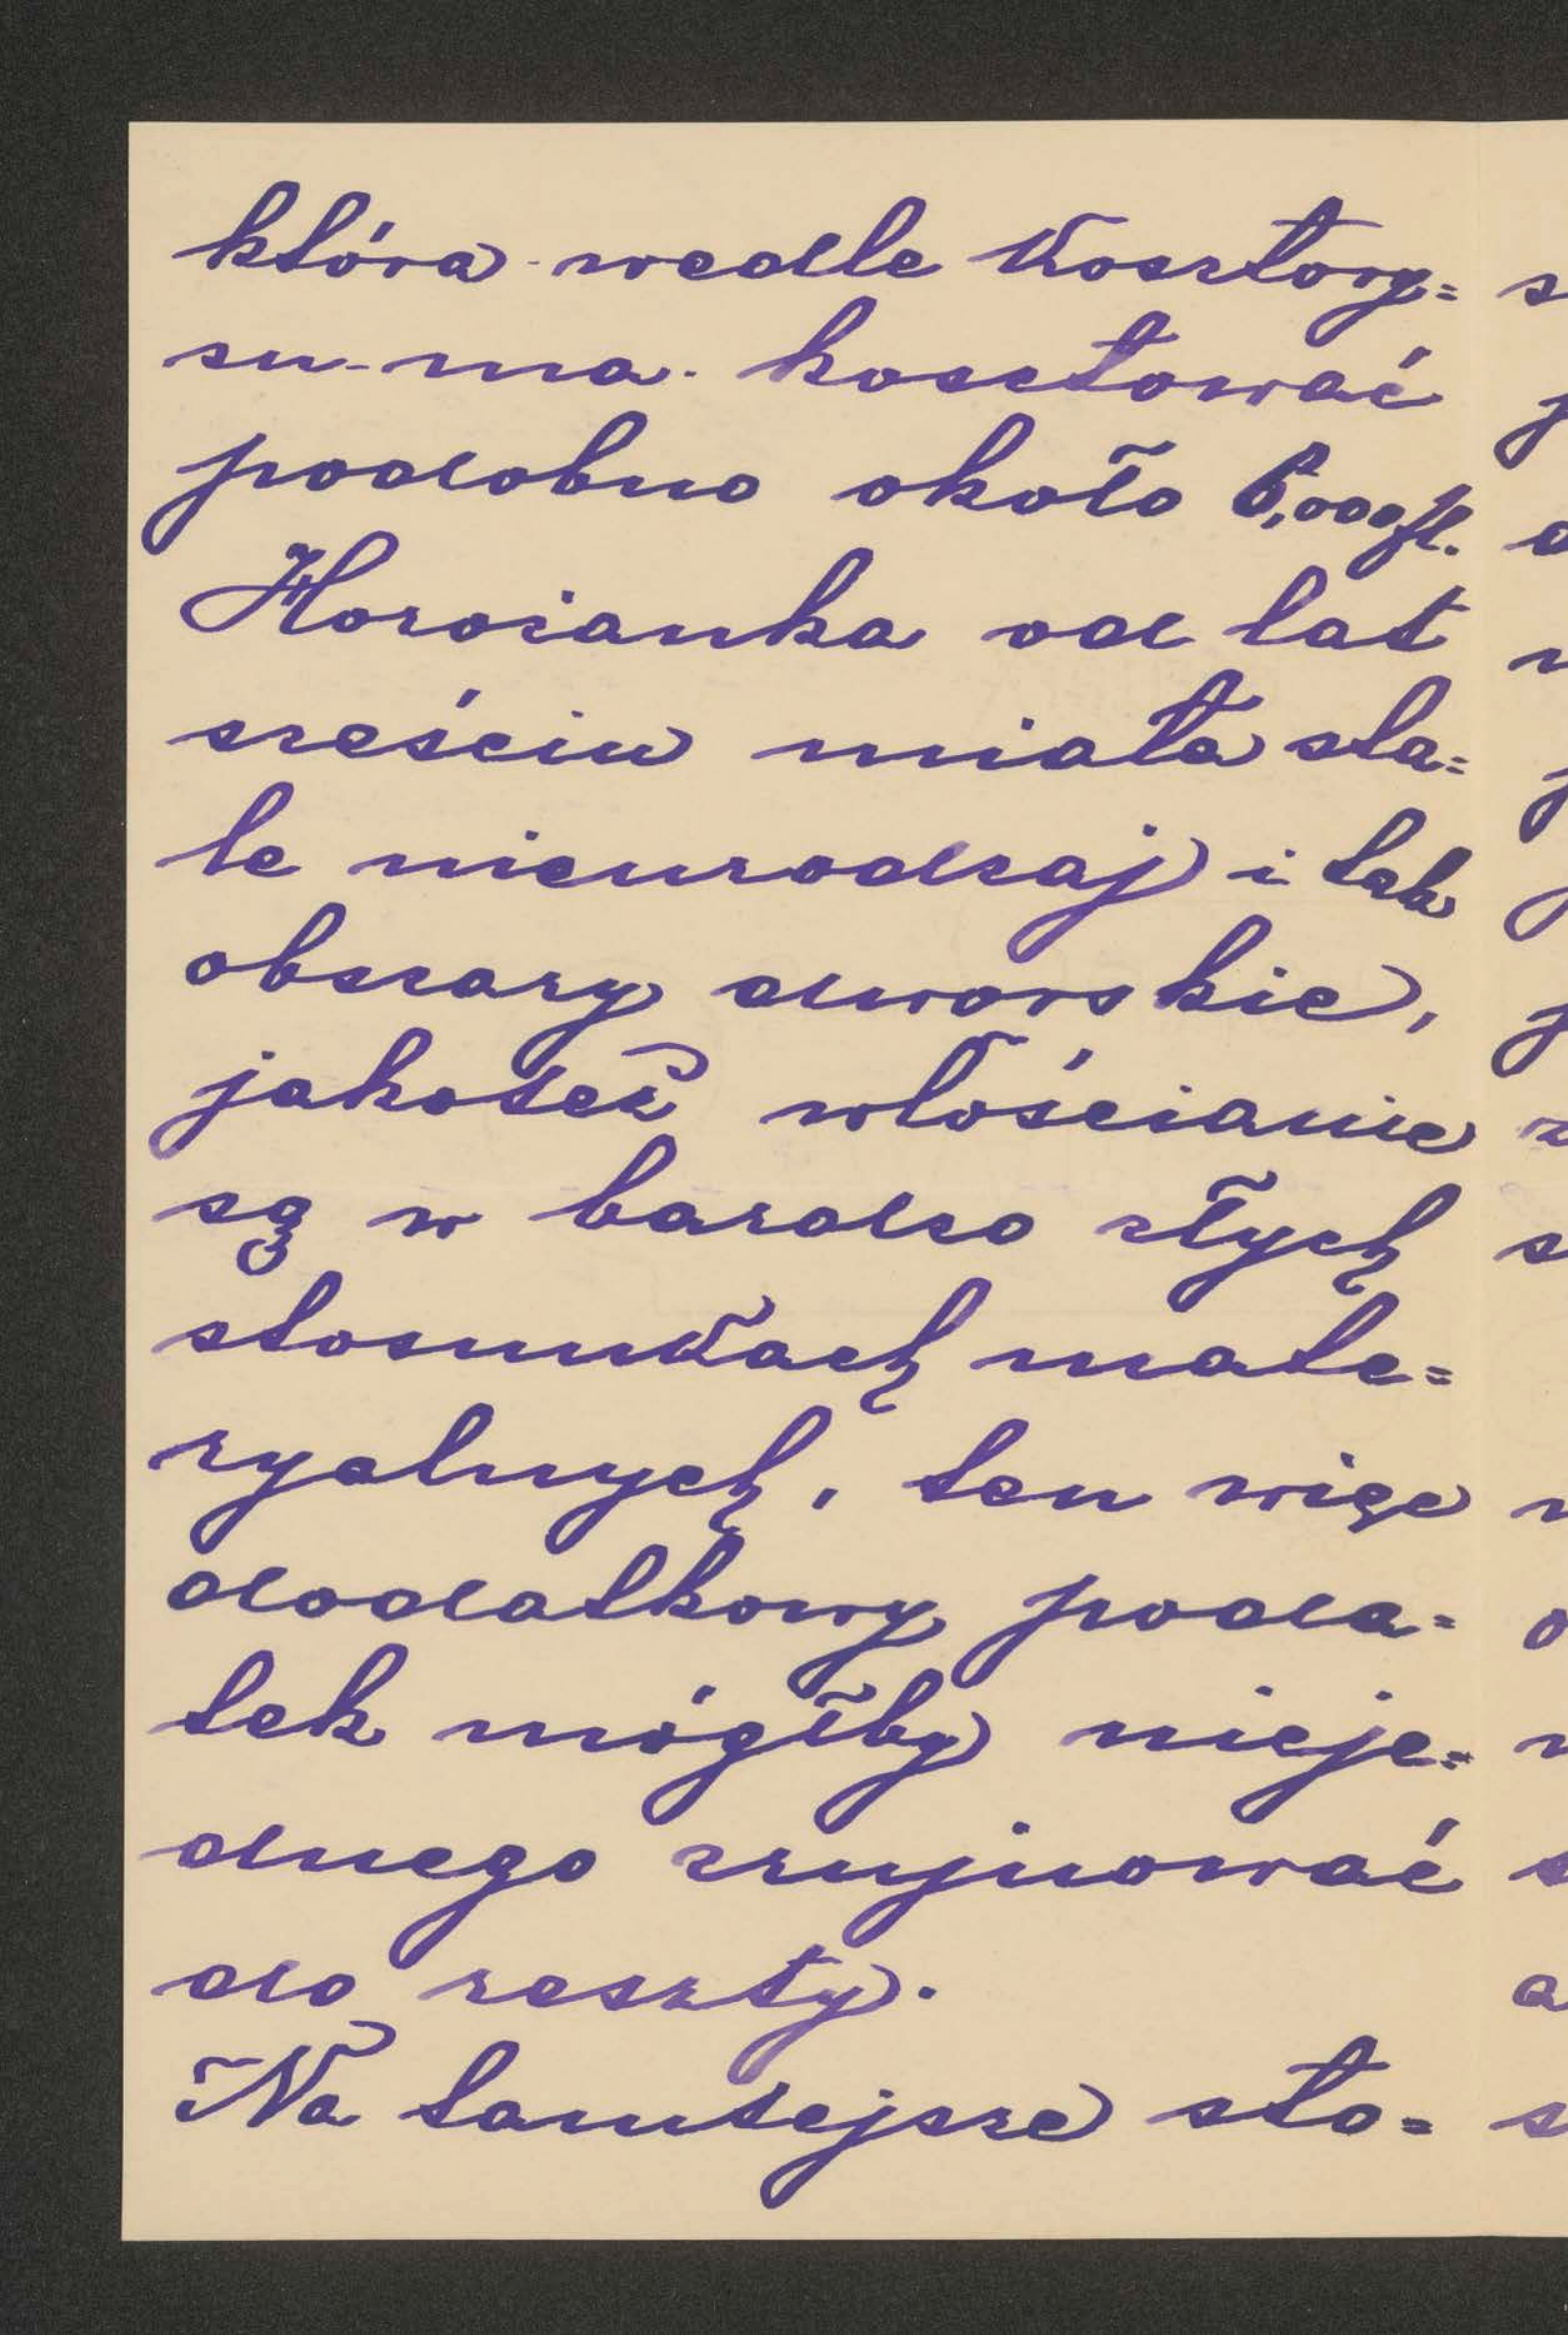 która wedle kosztory=
su ma kosztować
podobno około 6,000 fl.
Horożanka od lat
sześciu miała sta=
le nieurodzaj i tak
obszary dworskie,
jakoteż włościanie
są w bardzo złych
stosunkach mate=
ryalnych, ten więc
dodatkowy poda=
tek mógłby nieje=
dnego zrujnować
do reszty.
Na tamtejsze sto=